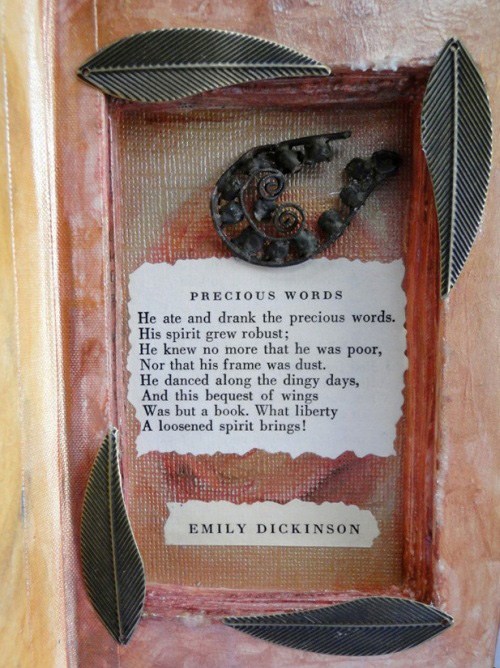 PRECIOUS WORDS
He ate and drank the precious words.
His spirit grew robust;
He knew no more that he was poor,
Nor that his frame was dust.
He danced along the dingy days,
And this bequest of wings
Was but a book. What liberty
A loosened spirit brings!
EMILY DICKINSON